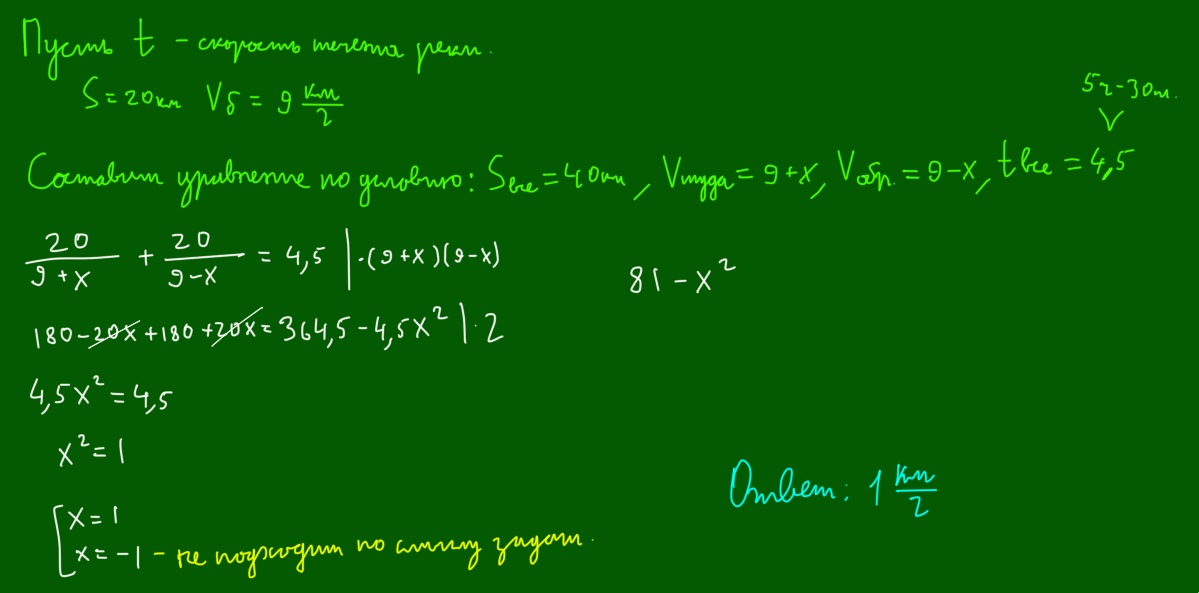 Пусть t - скорость течения реки.
S = 20км Vб = 9 км/ч
5ч-30м.
Составим уравнение по условию: Sвсе = 40км, Vтуда = 9+x, Vобр. = 9-x, tвсе = 4,5
20/(9+x) + 20/(9-x) = 4,5 | ·(9+x)(9-x)
81 - x²
180 - 20x + 180 + 20x = 364,5 - 4,5x² | · 2
4,5x² = 4,5
x² = 1
Ответ: 1 км/ч
[ x = 1
x = -1 - не подходит по смыслу задачи.